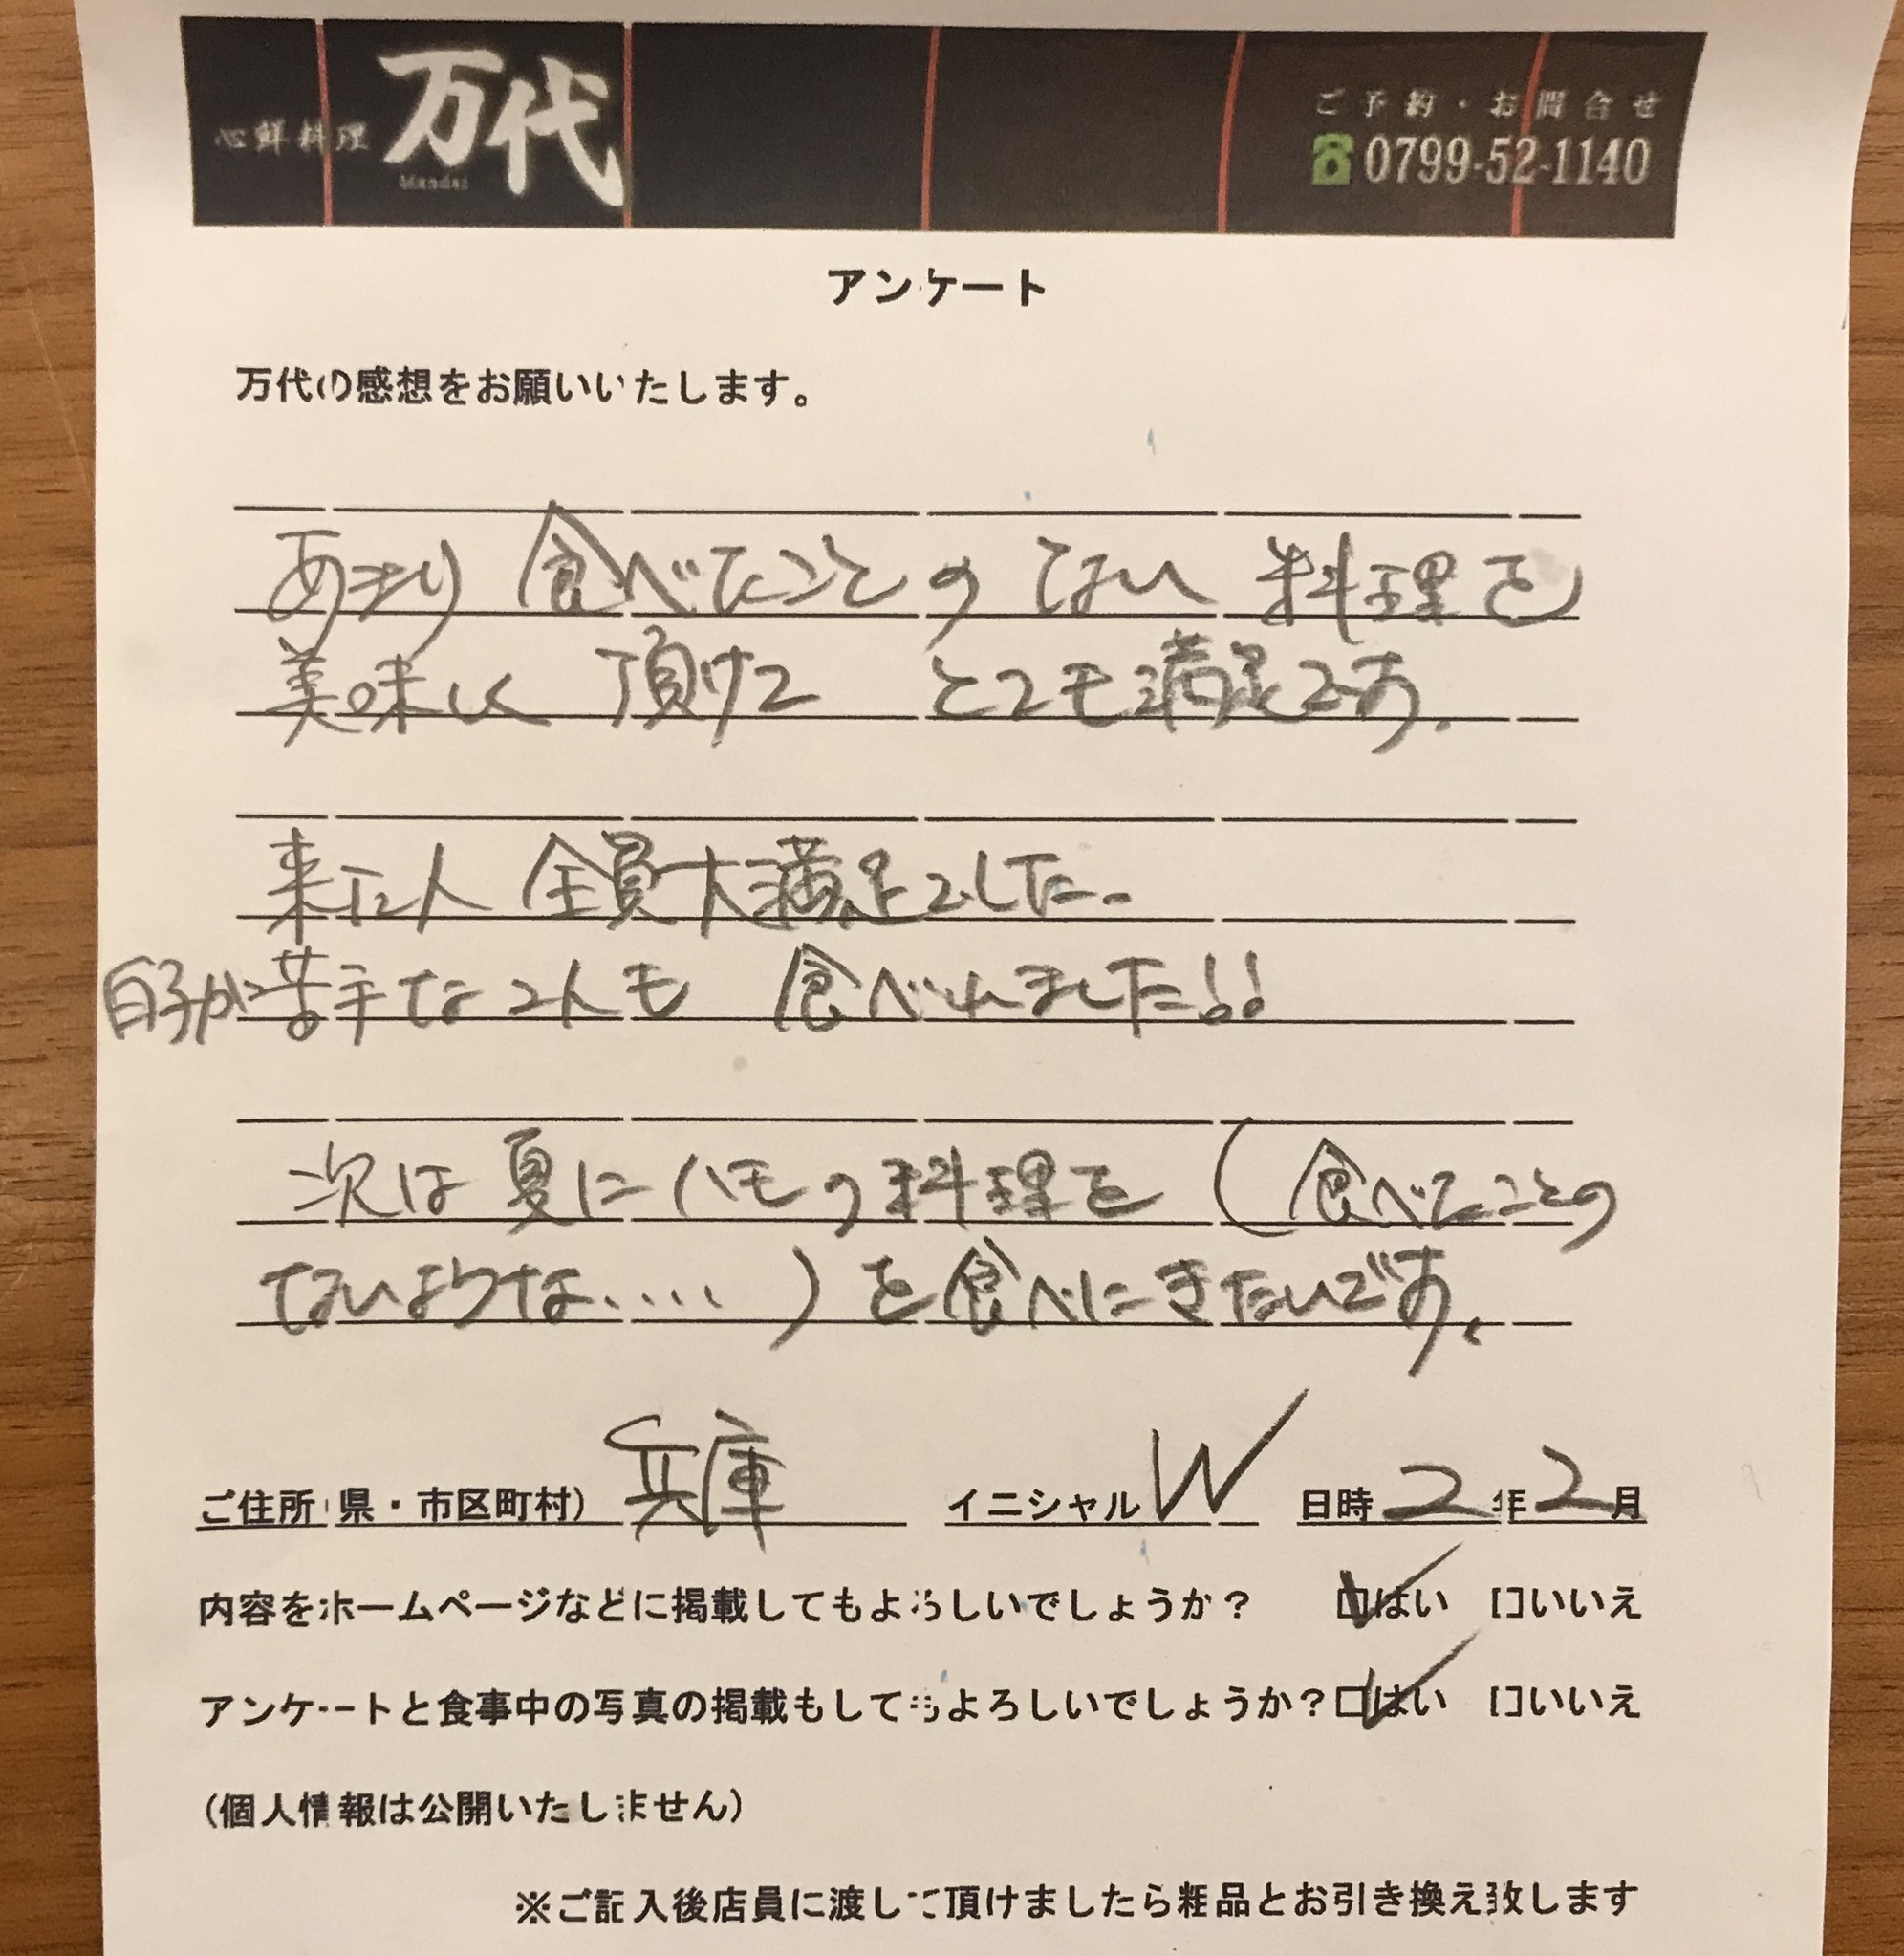 心鮮料理 万代
Mandai
ご予約・お問合せ
0799-52-1140
アンケート
万代の感想をお願いいたします。
あまり食べたことのない料理を
美味しく頂けて とても満足です.
来た人全員大満足でした.
白子が苦手な2人も 食べれました!!
次は夏にハモの料理を(食べたことの
ないような....)を食べにきたいです.
ご住所(県・市区町村) 兵庫 イニシャル W 日時 2年2月
内容をホームページなどに掲載してもよろしいでしょうか? ☑はい □いいえ
アンケートと食事中の写真の掲載もしてもよろしいでしょうか?☑はい □いいえ
(個人情報は公開いたしません)
※ご記入後店員に渡して頂けましたら粗品とお引き換え致します